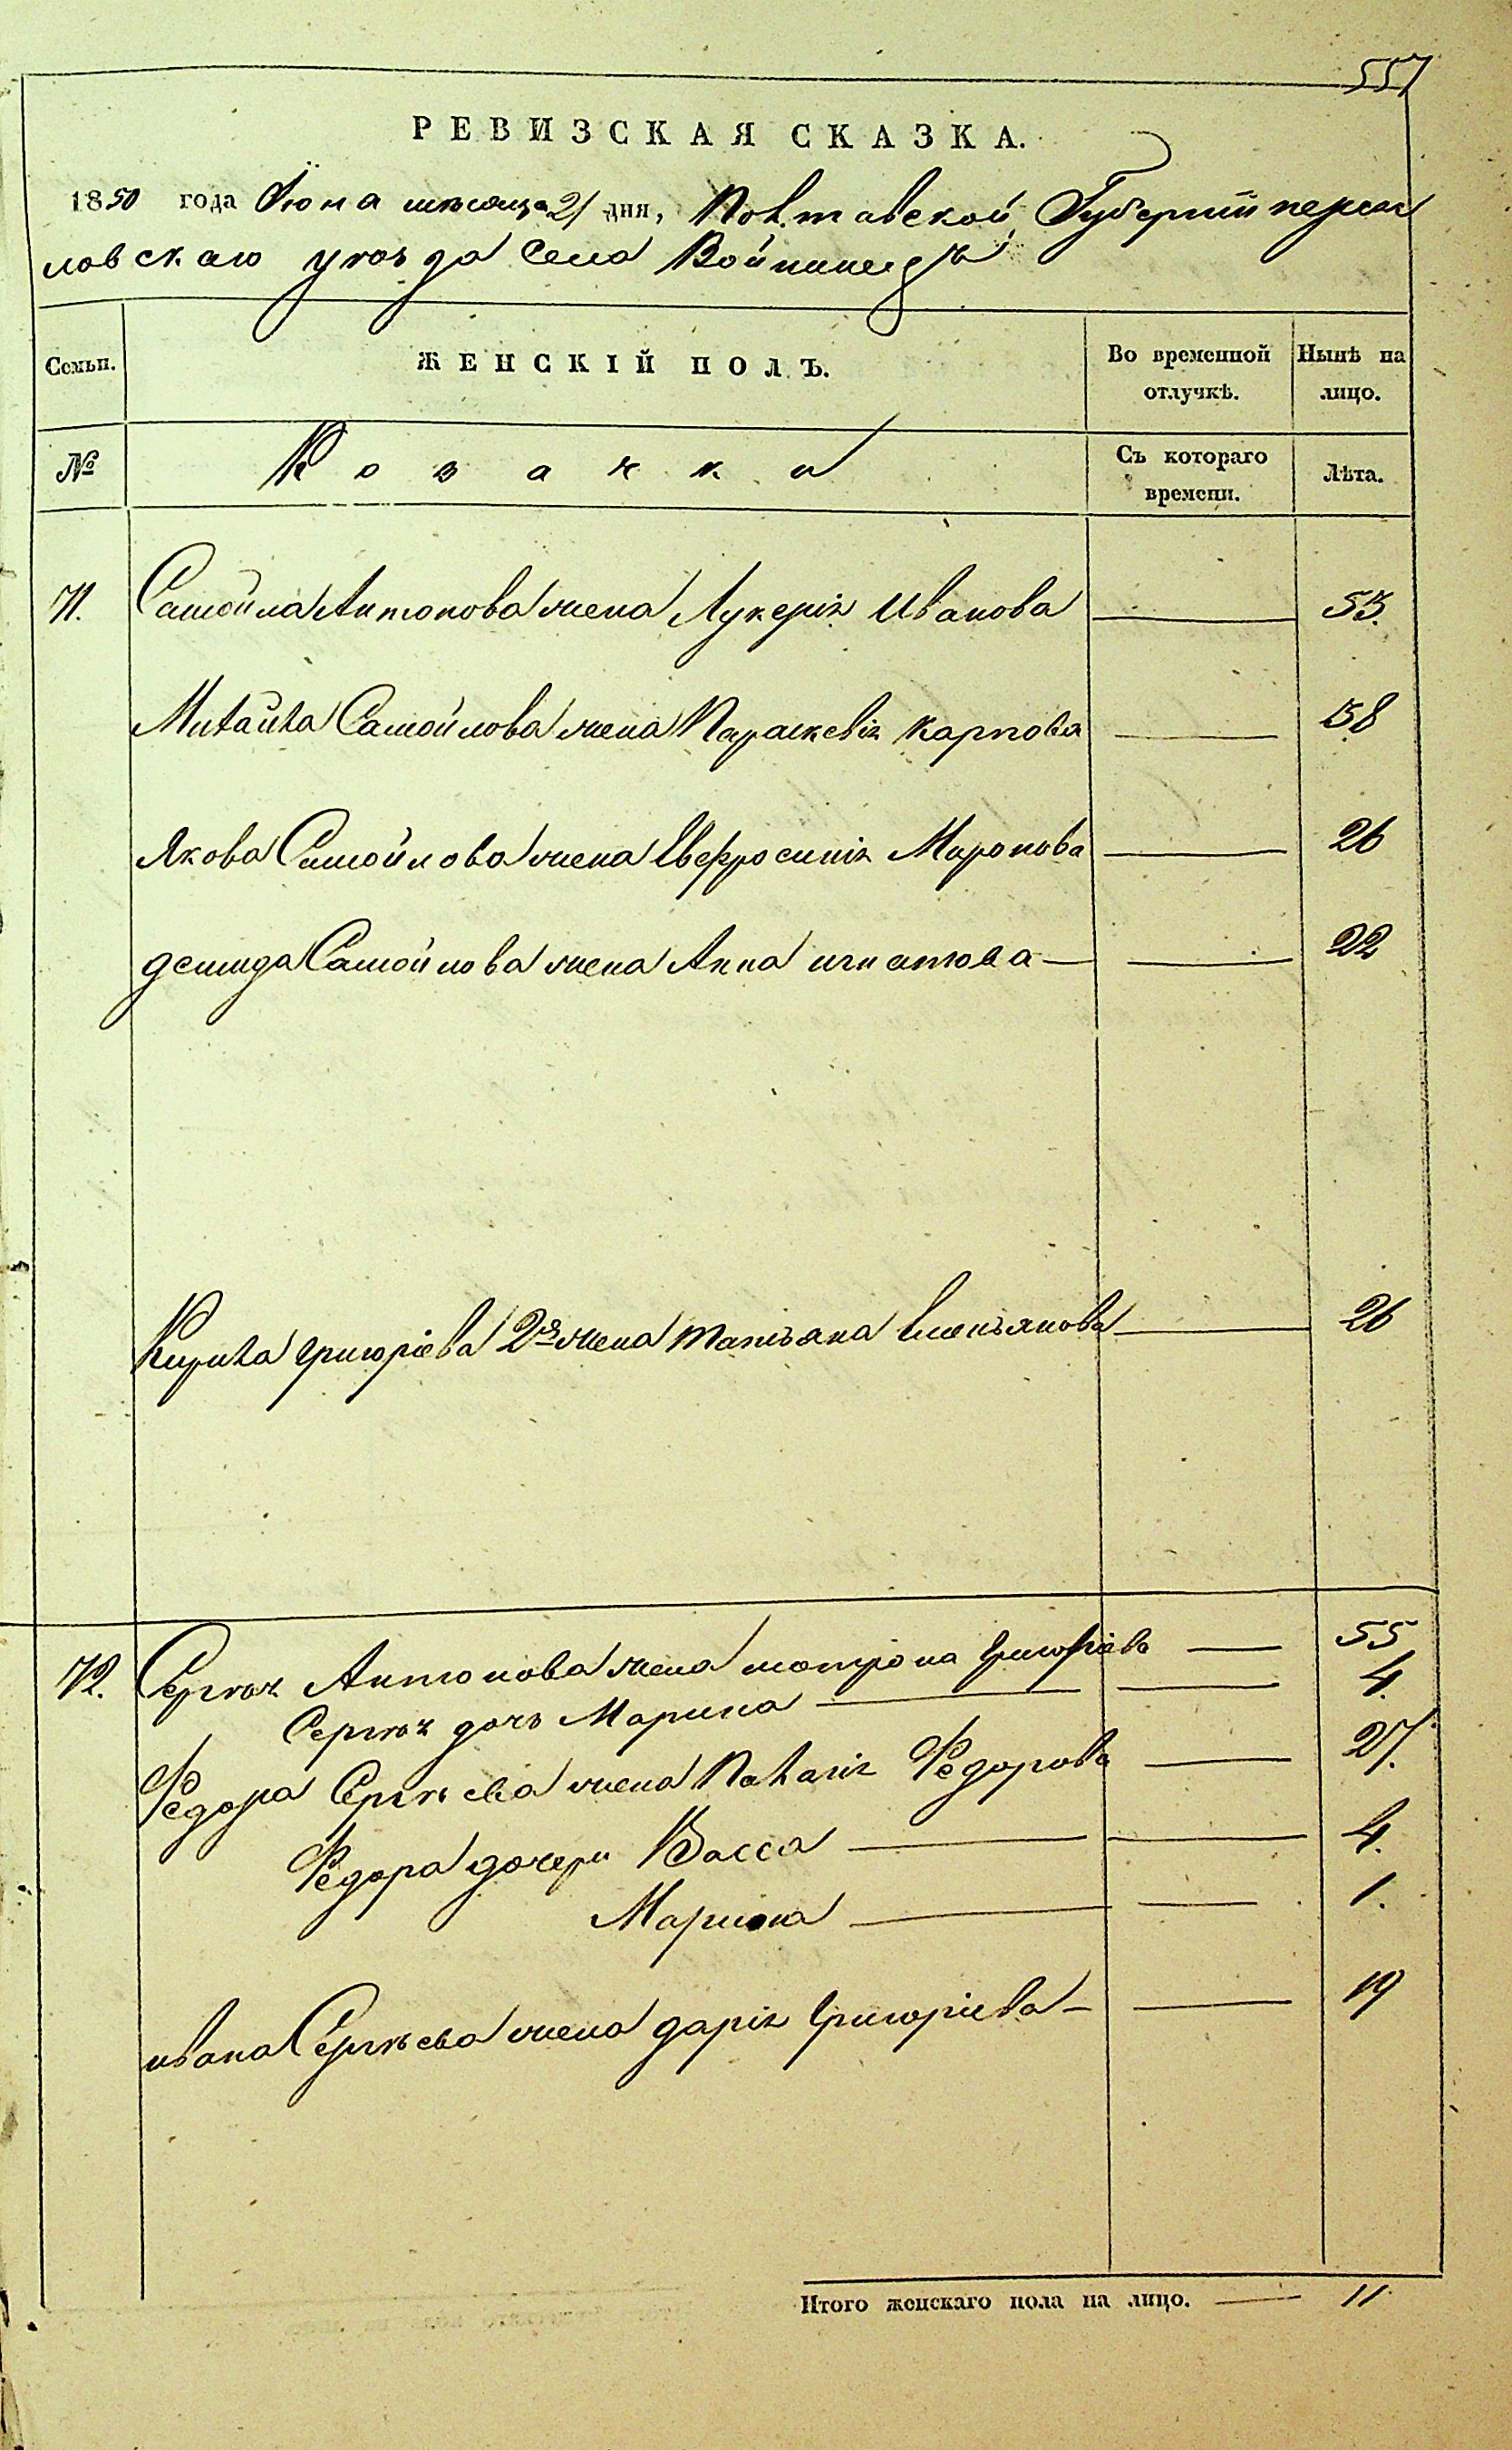 557
РЕВИЗСКАЯ СКАЗКА.
1850 года Июня мѣсяца 21 дня, Полтавской Губернии переяс
ловскаго уѣзда Села Войнинецъ
Семьи. ЖЕНСКІЙ ПОЛЪ. Во временной отлучкѣ. Нынѣ на лицо.
№ Козачки Съ котораго времени. Лѣта.
71. Самойла Антонова жена Лукерія Иванова — 53.
Михайла Самойлова жена Параскевія Карпова — 38
Якова Самойлова жена Евфросинія Миронова — 26
демида Самойлова жена Анна игнатова — — 22
Кирила григоріева 2я жена татьяна Емельянова — 26
72. Сергѣя Антонова жена мотрона григоріева — 55
Сергѣя дочь Марина — — 4.
Федора Сергѣева жена Наталія Федорова — 27.
Федора дочери Васса — — 4.
Марина — — 1.
ивана Сергѣева жена дарія григоріева — — 19
Итого женскаго пола на лицо. — 11